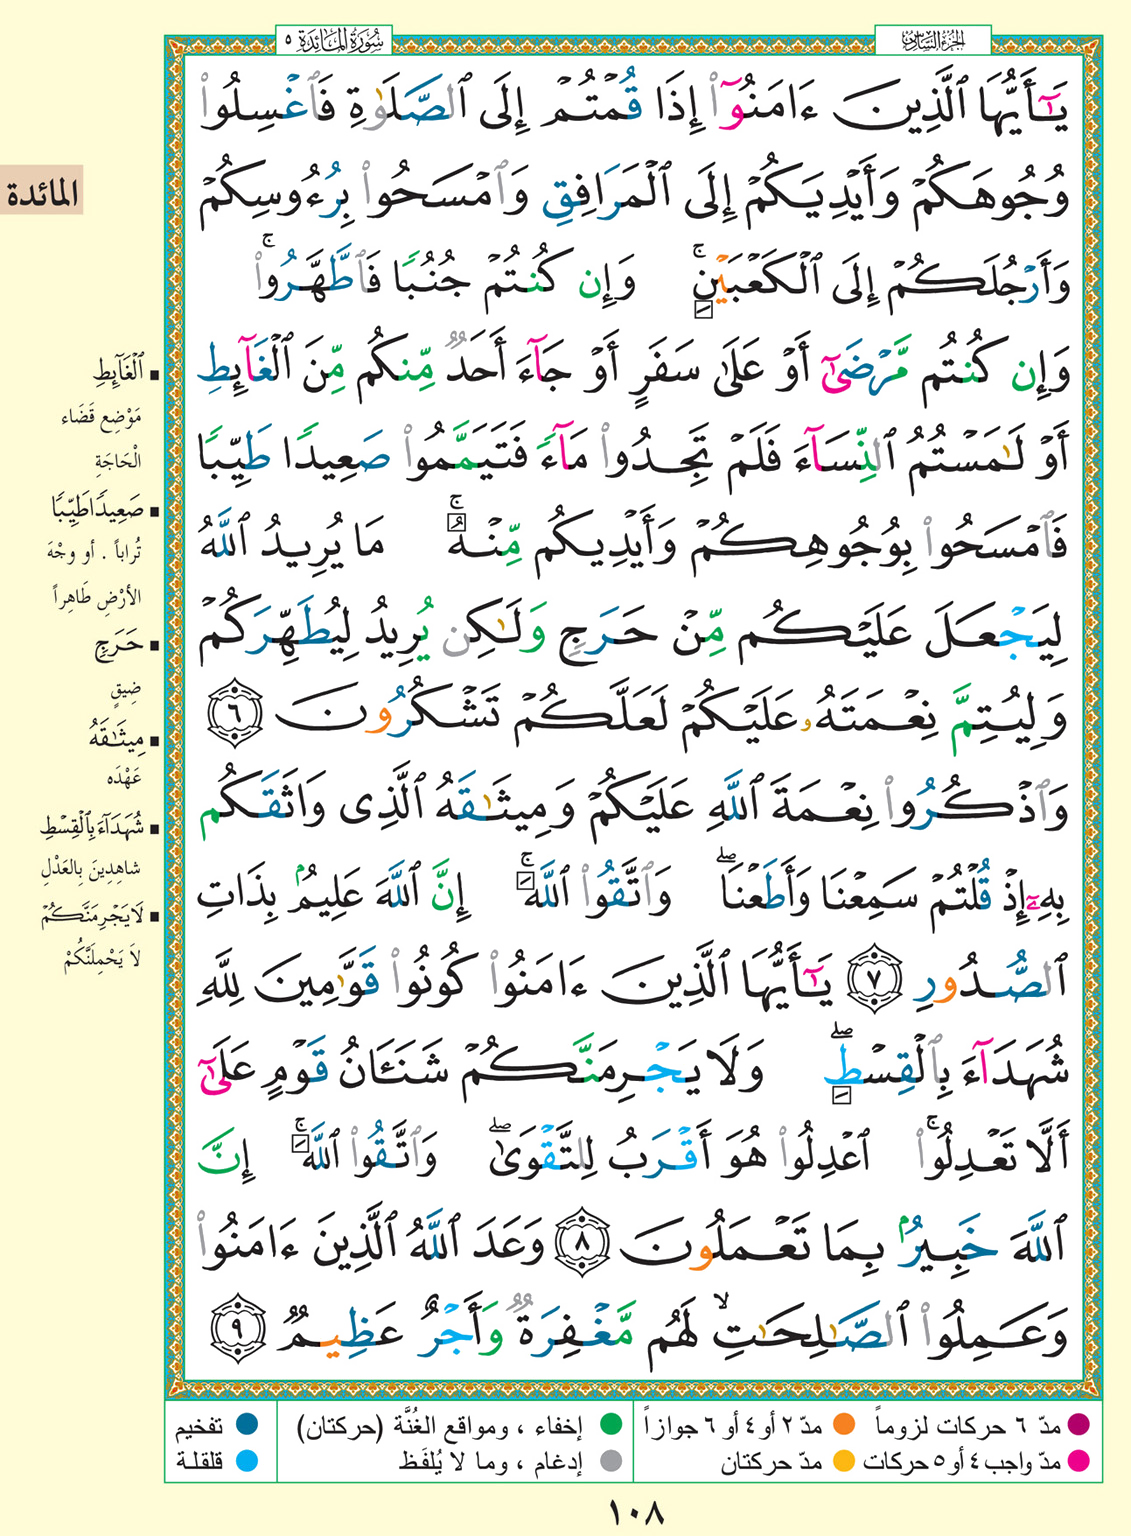 سُورَةُ المَائدَة ٥
الجزء السادس
يَـٰٓأَيُّهَا ٱلَّذِينَ ءَامَنُوٓا۟ إِذَا قُمْتُمْ إِلَى ٱلصَّلَوٰةِ فَٱغْسِلُوا۟
وُجُوهَكُمْ وَأَيْدِيَكُمْ إِلَى ٱلْمَرَافِقِ وَٱمْسَحُوا۟ بِرُءُوسِكُمْ
وَأَرْجُلَكُمْ إِلَى ٱلْكَعْبَيْنِ ۚ وَإِن كُنتُمْ جُنُبًا فَٱطَّهَّرُوا۟ ۚ
وَإِن كُنتُم مَّرْضَىٰٓ أَوْ عَلَىٰ سَفَرٍ أَوْ جَآءَ أَحَدٌ مِّنكُم مِّنَ ٱلْغَآئِطِ
أَوْ لَـٰمَسْتُمُ ٱلنِّسَآءَ فَلَمْ تَجِدُوا۟ مَآءً فَتَيَمَّمُوا۟ صَعِيدًا طَيِّبًا
فَٱمْسَحُوا۟ بِوُجُوهِكُمْ وَأَيْدِيكُم مِّنْهُ ۚ مَا يُرِيدُ ٱللَّهُ
لِيَجْعَلَ عَلَيْكُم مِّنْ حَرَجٍ وَلَـٰكِن يُرِيدُ لِيُطَهِّرَكُمْ
وَلِيُتِمَّ نِعْمَتَهُۥ عَلَيْكُمْ لَعَلَّكُمْ تَشْكُرُونَ ٦
وَٱذْكُرُوا۟ نِعْمَةَ ٱللَّهِ عَلَيْكُمْ وَمِيثَـٰقَهُ ٱلَّذِى وَاثَقَكُم
بِهِۦٓ إِذْ قُلْتُمْ سَمِعْنَا وَأَطَعْنَا ۖ وَٱتَّقُوا۟ ٱللَّهَ ۚ إِنَّ ٱللَّهَ عَلِيمٌۢ بِذَاتِ
ٱلصُّدُورِ ٧ يَـٰٓأَيُّهَا ٱلَّذِينَ ءَامَنُوا۟ كُونُوا۟ قَوَّٰمِينَ لِلَّهِ
شُهَدَآءَ بِٱلْقِسْطِ ۖ وَلَا يَجْرِمَنَّكُمْ شَنَـَٔانُ قَوْمٍ عَلَىٰٓ
أَلَّا تَعْدِلُوا۟ ۚ ٱعْدِلُوا۟ هُوَ أَقْرَبُ لِلتَّقْوَىٰ ۖ وَٱتَّقُوا۟ ٱللَّهَ ۚ إِنَّ
ٱللَّهَ خَبِيرٌۢ بِمَا تَعْمَلُونَ ٨ وَعَدَ ٱللَّهُ ٱلَّذِينَ ءَامَنُوا۟
وَعَمِلُوا۟ ٱلصَّـٰلِحَـٰتِ ۙ لَهُم مَّغْفِرَةٌ وَأَجْرٌ عَظِيمٌ ٩
المائدة
ٱلْغَآئِطِ
مَوْضِع قَضَاء
الْحَاجَةِ
صَعِيدًا طَيِّبًا
تُراباً . أو وجْهَ
الأرْضِ طَاهِراً
حَرَجٍ
ضِيقٍ
مِيثَـٰقَهُ
عَهْدَه
شُهَدَآءَ بِٱلْقِسْطِ
شاهِدِينَ بِالعَدْلِ
لَا يَجْرِمَنَّكُمْ
لاَ يَحْمِلَنَّكُمْ
مدّ ٦ حركات لزوماً
مدّ ٢ أو ٤ أو ٦ جوازاً
إخفاء ، ومواقع الغُنَّة (حركتان)
تفخيم
مدّ واجب ٤ أو ٥ حركات
مدّ حركتان
إدغام ، وما لا يُلفَظ
قلقلة
١٠٨